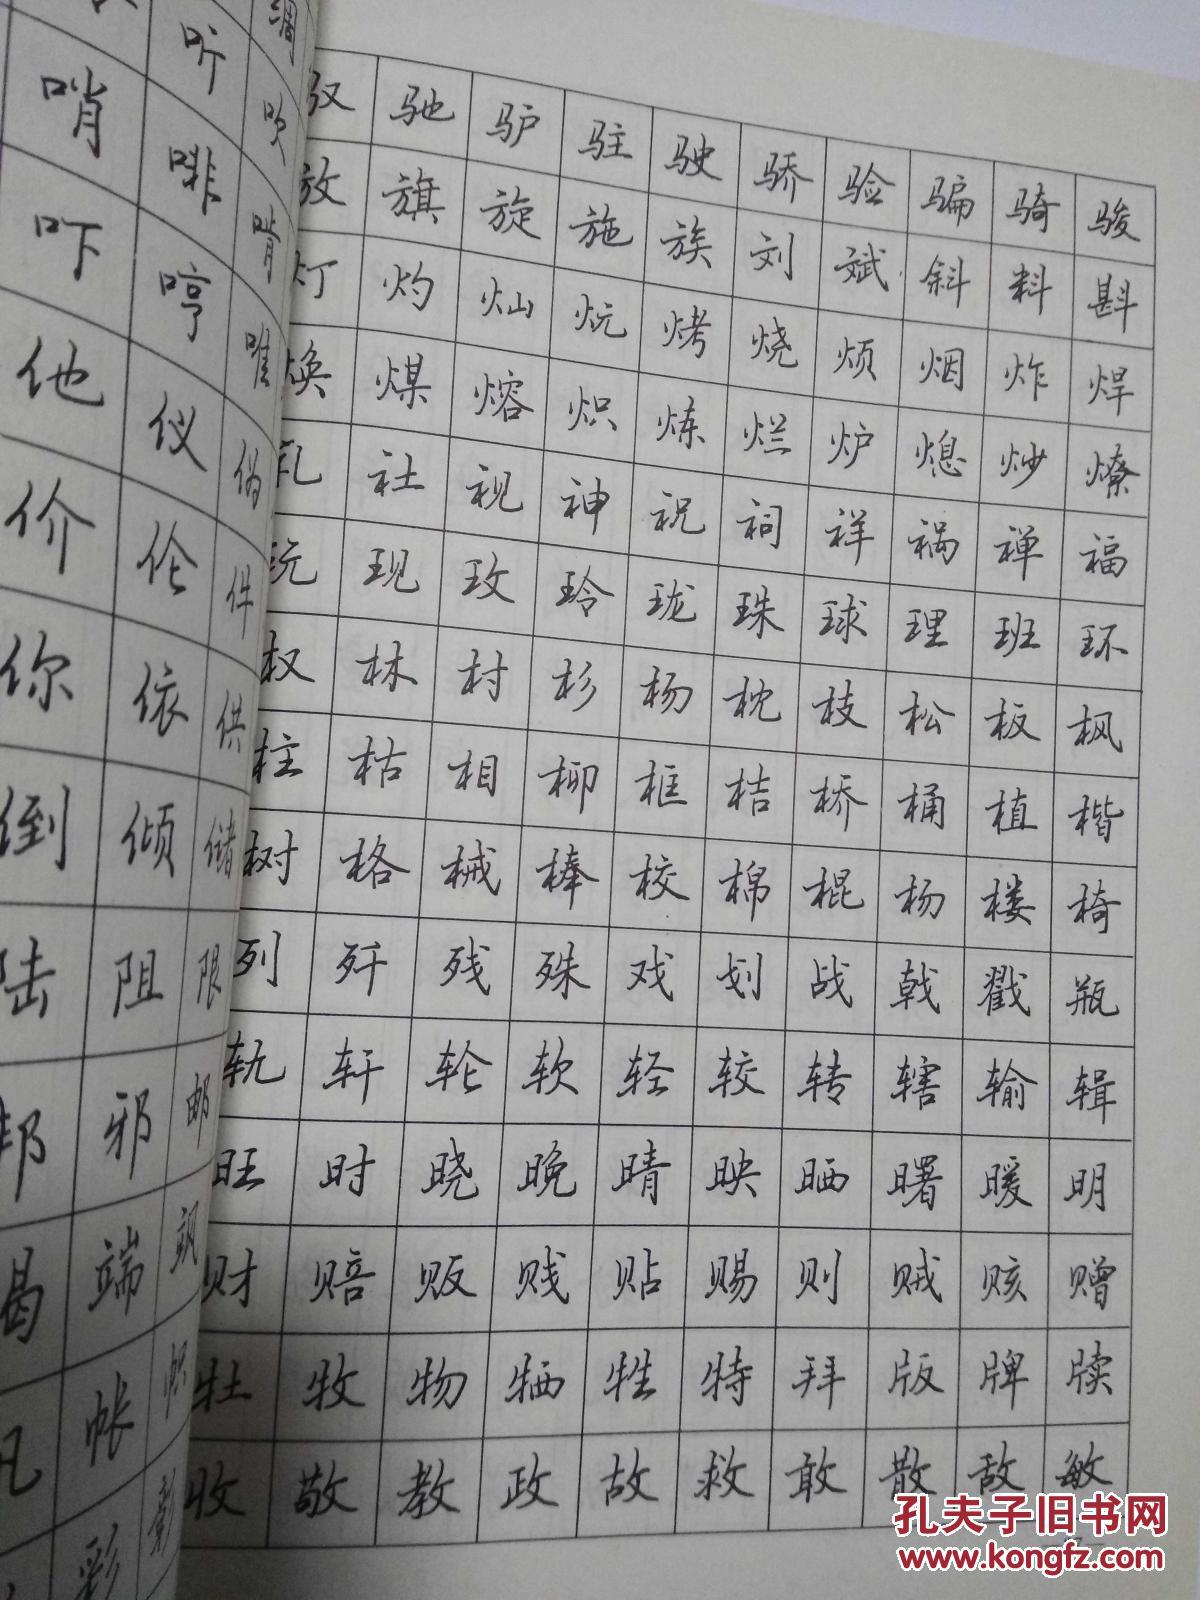 绸
听 吹
哨 啡 啃
吓 哼 唯
他 仪 伪
价 伦 件
你 依 供
倒 倾 储
陆 阻 限
邦 邪 邮
端 飒
帐 帜
彩 彰
驭 驰 驴 驻 驶 骄 验 骗 骑 骏
放 旗 旋 施 族 刘 斌 斜 料 斟
灯 灼 灿 炕 烤 烧 烦 烟 炸 焊
焕 煤 熔 炽 炼 烂 炉 熄 炒 燎
礼 社 视 神 祝 祠 祥 祸 禅 福
玩 现 玫 玲 珑 珠 球 理 班 环
权 林 村 杉 杨 枕 枝 松 板 枫
柱 枯 相 柳 框 桔 桥 桶 植 楷
树 格 械 棒 校 棉 棍 杨 楼 椅
列 歼 残 殊 戏 划 战 戟 戳 瓶
轨 轩 轮 软 轻 较 转 辖 输 辑
旺 时 晓 晚 晴 映 晒 曙 暖 明
财 赔 贩 贱 贴 赐 则 贼 赅 赠
牡 牧 物 牺 牲 特 拜 版 牌 牍
收 敬 教 政 故 救 敢 散 敌 敏
孔夫子旧书网
www.kongfz.com